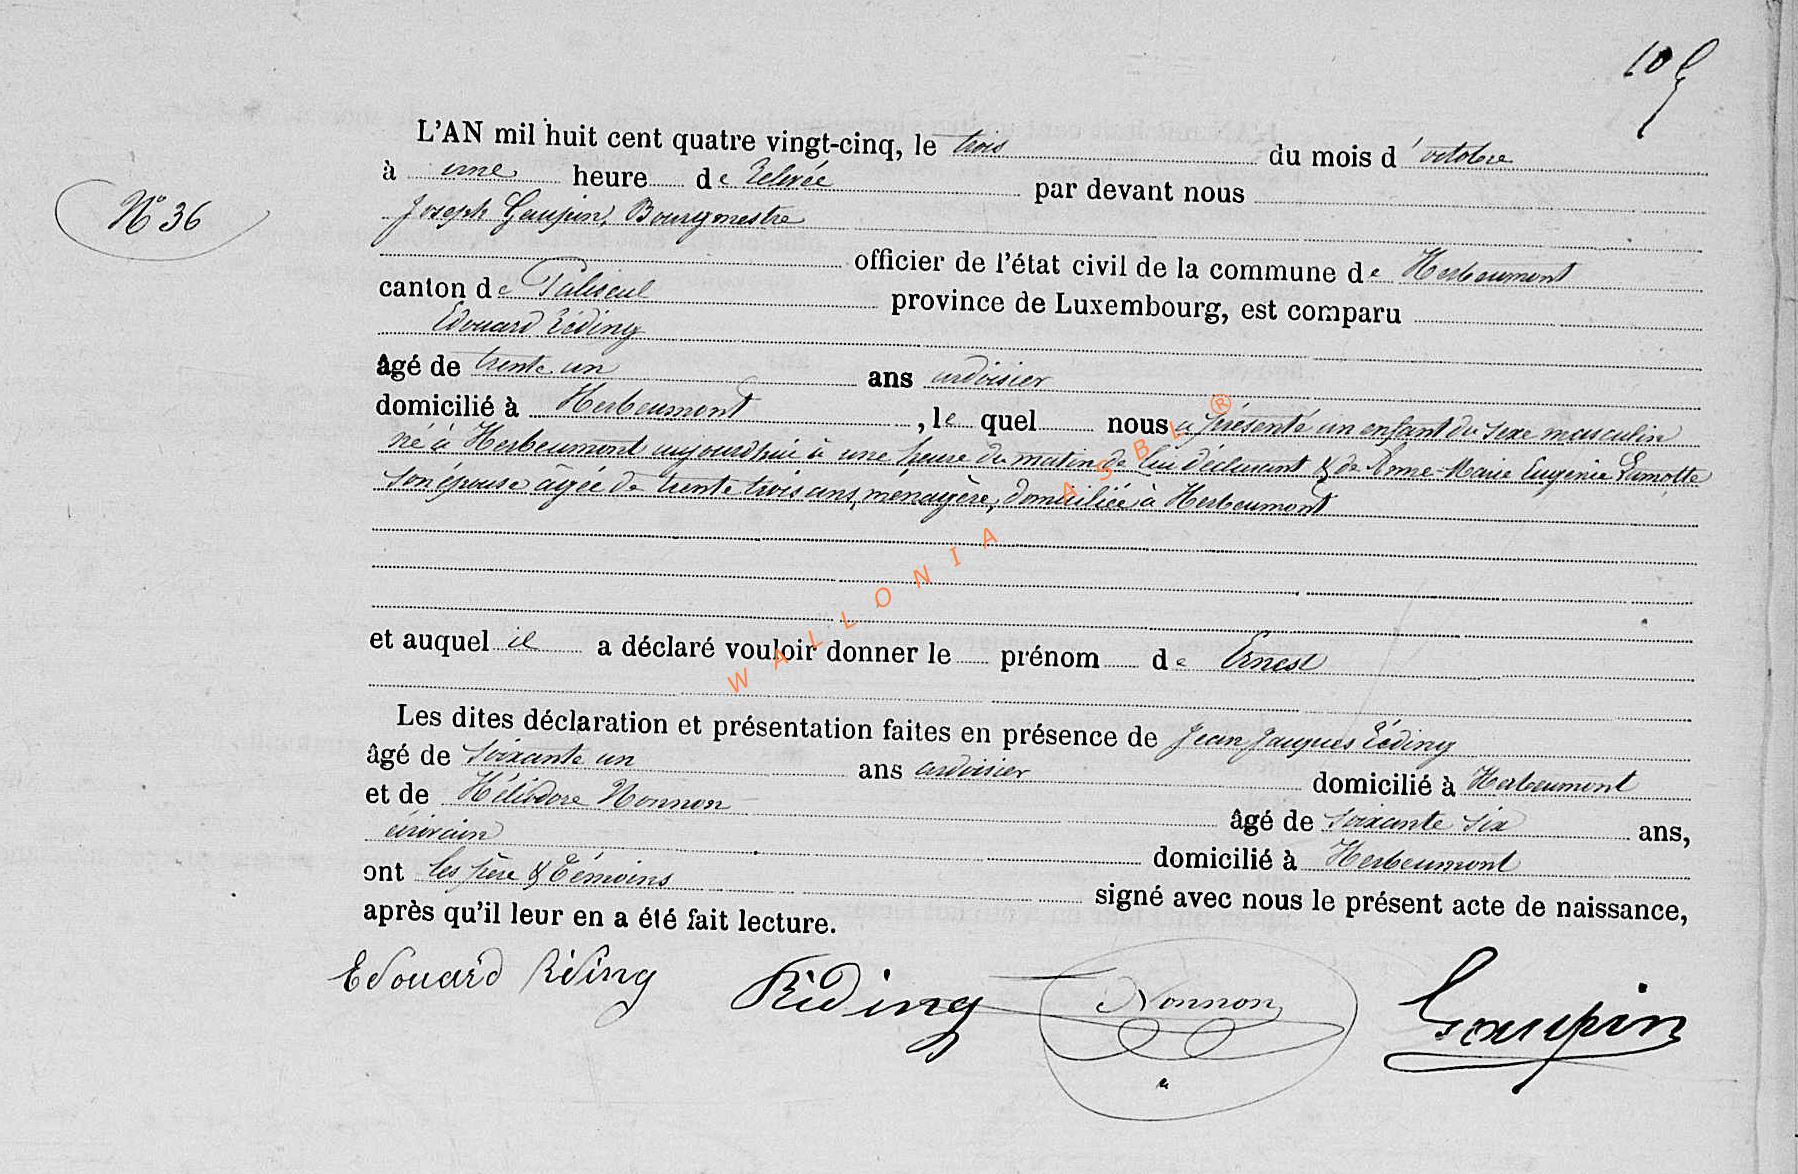 105
L'AN mil huit cent quatre vingt-cinq, le trois du mois d'octobre
à une heure de Relevée par devant nous
N° 36
Joseph Gaupin, Bourgmestre
officier de l'état civil de la commune de Herbeumont
canton de Paliseul province de Luxembourg, est comparu
Edouard Réding
âgé de trente un ans ardoisier
domicilié à Herbeumont, le quel nous a présenté un enfant du sexe masculin
né à Herbeumont aujourd'hui à une heure du matin de lui déclarant & de Anne-Marie Eugénie Lamotte
son épouse âgée de trente trois ans, ménagère, domiciliée à Herbeumont
WALLONIA ASBL ®
et auquel il a déclaré vouloir donner le prénom de Ernest
Les dites déclaration et présentation faites en présence de Jean Jacques Réding
âgé de soixante un ans ardoisier domicilié à Herbeumont
et de Héliodore Nonnon âgé de soixante six ans,
écrivain domicilié à Herbeumont
ont les père & témoins signé avec nous le présent acte de naissance,
après qu'il leur en a été fait lecture.
Edouard Réding Réding Nonnon Gaupin